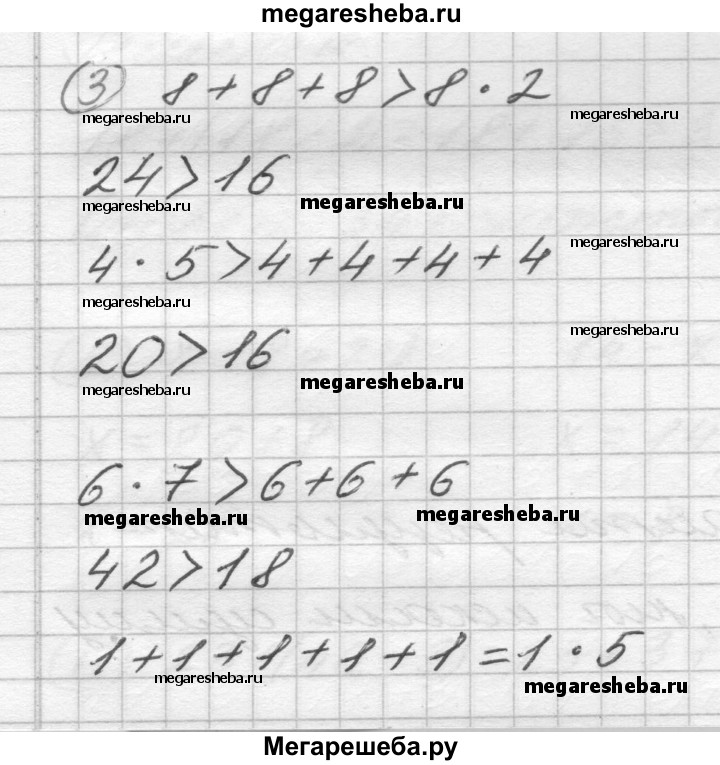 megaresheba.ru
3 8 + 8 + 8 > 8 · 2
megaresheba.ru megaresheba.ru
24 > 16
megaresheba.ru megaresheba.ru
4 · 5 > 4 + 4 + 4 + 4
megaresheba.ru
megaresheba.ru
20 > 16
megaresheba.ru
megaresheba.ru megaresheba.ru
6 · 7 > 6 + 6 + 6
megaresheba.ru megaresheba.ru
42 > 18
1 + 1 + 1 + 1 + 1 = 1 · 5
megaresheba.ru megaresheba.ru
Мегарешеба.ру